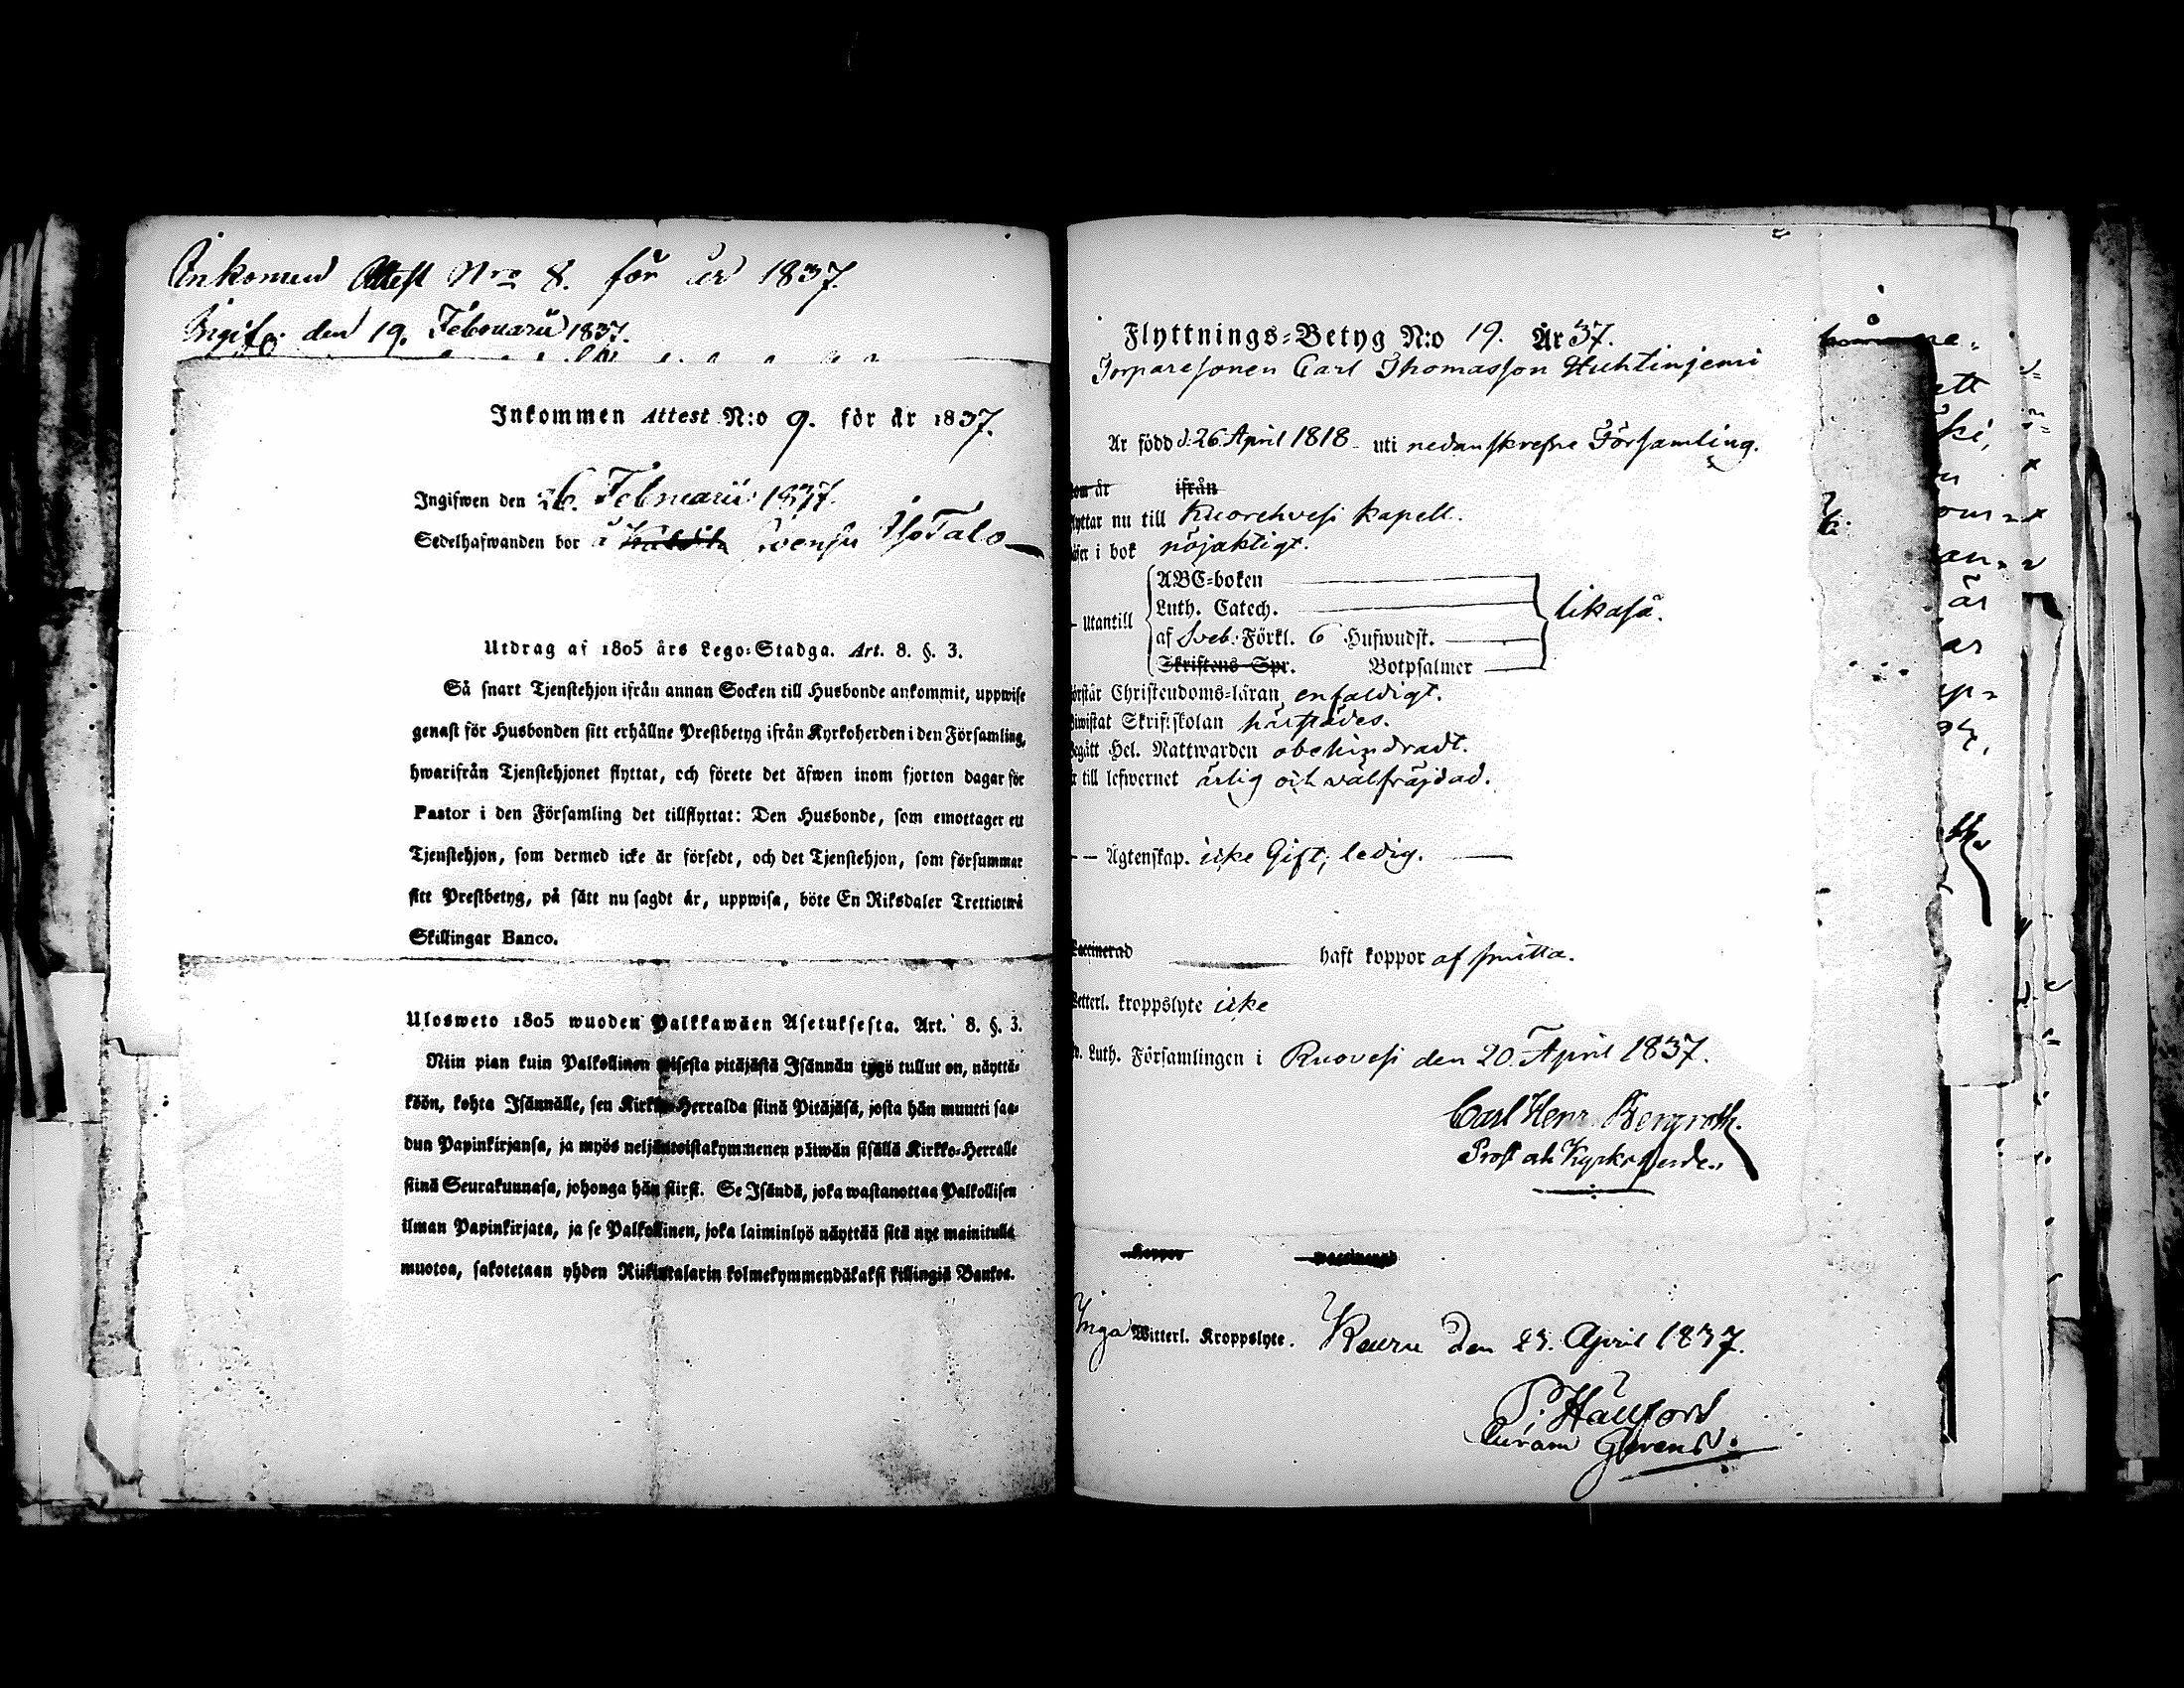 Inkommen Attest Nro 8. för år 1837.
Ingifv. den 19. Februarii 1837.
Inkommen Attest N:o 9. för år 1837.
Ingifwen den 26. Februarii 1837.
Sedelhafwanden bor å Iso Talo
Utdrag af 1805 års Lego-Stadga. Art. 8. §. 3.
Så snart Tjenstehjon ifrån annan Socken till Husbonde ankommit, uppwise
genast för Husbonden sitt erhållne Prestbetyg ifrån Kyrkoherden i den Församling,
hwarifrån Tjenstehjonet flyttat, och förete det äfwen inom fjorton dagar för
Pastor i den Församling det tillflyttat: Den Husbonde, som emottager ett
Tjenstehjon, som dermed icke är försedt, och det Tjenstehjon, som försummar
sitt Prestbetyg, på sätt nu sagdt är, uppwisa, böte En Riksdaler Trettiotwå
Skillingar Banco.
Ulosweto 1805 wuoden Palkkawäen Asetuksesta. Art. 8. §. 3.
Niin pian kuin Palkollinen toisesta pitäjästä Isännän tygö tullut on, näyttä-
köön, kohta Isännälle, sen Kirkko-Herralda siinä Pitäjäsä, josta hän muutti saa-
dun Papinkirjansa, ja myös neljäntoistakymmenen päiwän sisällä Kirkko-Herralle
siinä Seurakunnasa, johonga hän siirsi. Se Isändä, joka wastanottaa Palkollisen
ilman Papinkirjata, ja se Palkollinen, joka laiminlyö näyttää sitä nyt mainitulla
muotoa, sakotetaan yhden Riikintalarin kolmekymmendäkaksi killingiä Bankoa.
Flyttnings-Betyg N:o 19. År 37.
Torparesonen Carl Thomasson Huhtinjemi
Är född d. 26 April 1818 uti nedanskrefne Församling.
kom år ifrån
flyttar nu till Kuorehvesi kapell.
läser i bok nöjaktigt.
ABC-boken
Luth. Catech.
Utantill likaså.
af Sveb. Förkl. 6 Hufwudst.
Skriftens Spr. Botpsalmer
förstår Christendoms-läran enfaldigt.
biwistat Skriftskolan härstädes.
begått Hel. Nattwarden obehindradt.
är till lefwernet ärlig och välfräjdad.
Ägtenskap. icke Gift, ledig.
Vaccinerad haft koppor af smitta.
Vetterl. kroppslyte icke
Ev. Luth. Församlingen i Ruovesi den 20. April 1837.
Carl Henr. Bergroth.
Prost och Kyrkoherde.
Koppor vaccinerad
Inga Witterl. Kroppslyte. Keuru den 23. April 1837.
P. Hällfors
Curam Gerens.